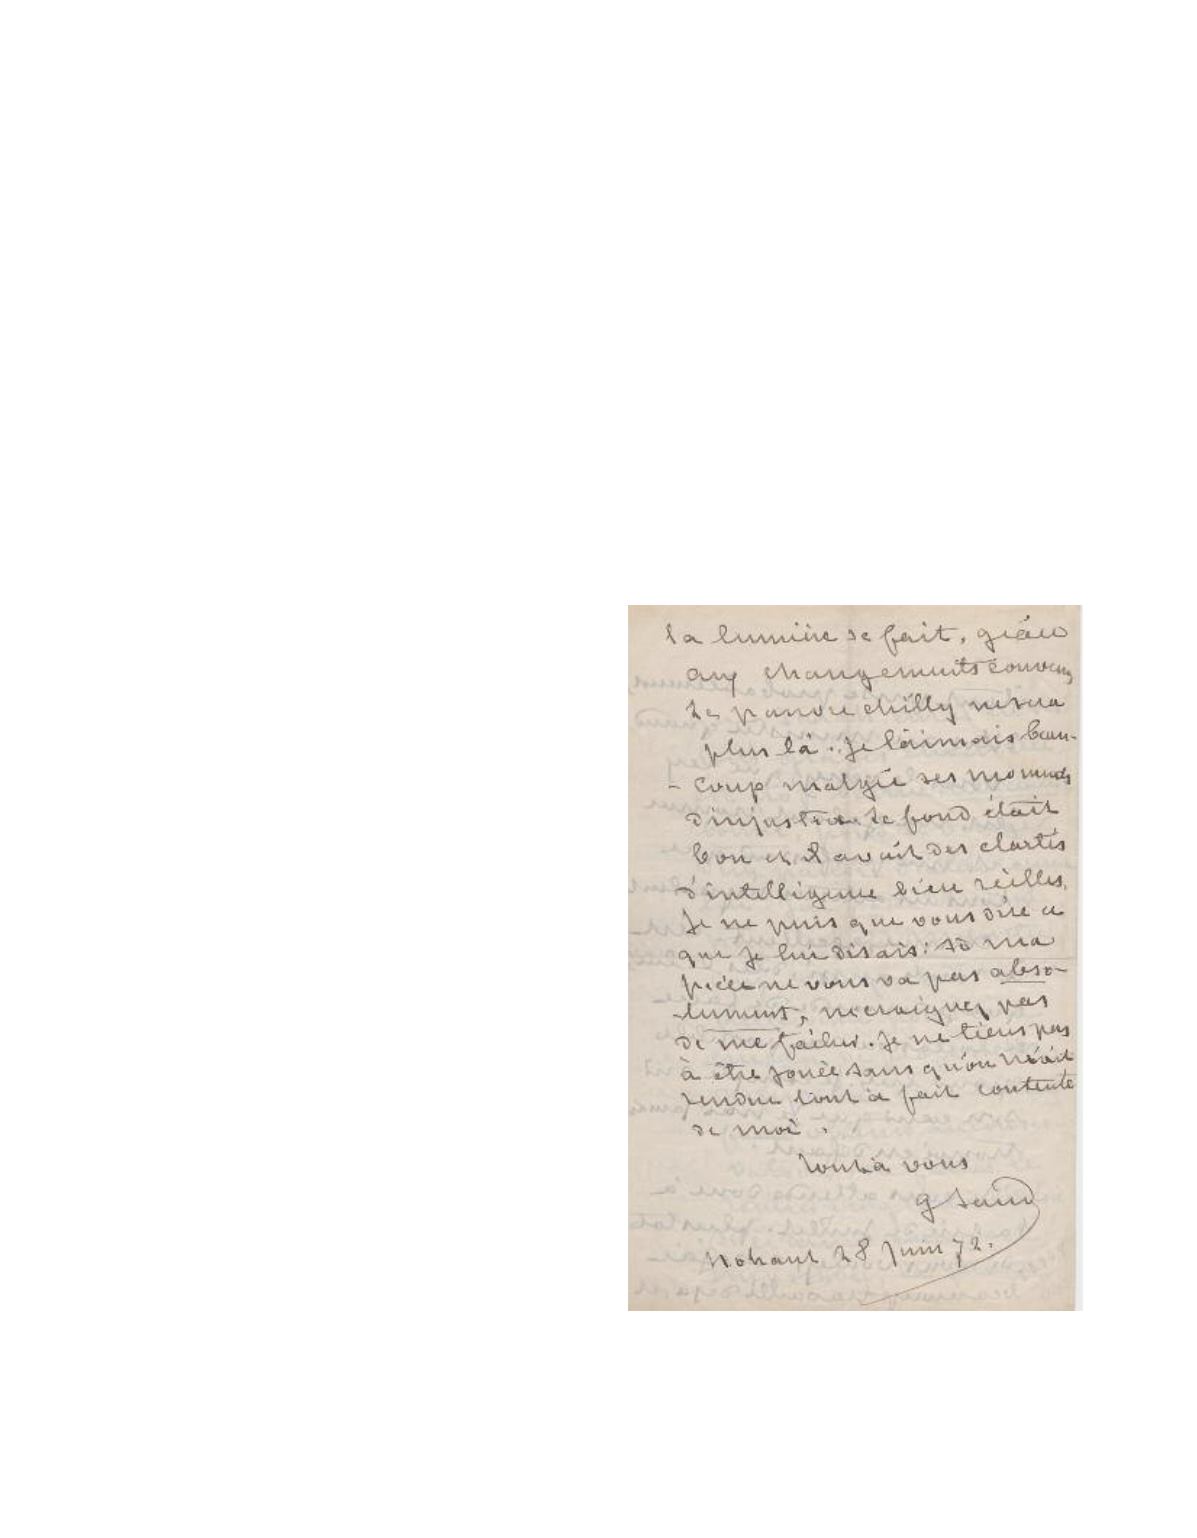 la lumière se fait, grâce
aux changements convenus
Le pauvre chilly ne sera
plus là. Je l'aimais beau-
- coup malgré ses moments
d'injustice. Le fond était
bon et il avait des clartés
d'intelligence bien réelles.
Je ne puis que vous dire ce
que je lui disais: si ma
pièce ne vous va pas abso-
-lument, ne craignez pas
de me fâcher. Je ne tiens pas
à être jouée sans qu'on m'ait
rendue tout à fait contente
de moi.
Tout à vous
G Sand
Nohant 28 Juin 72.